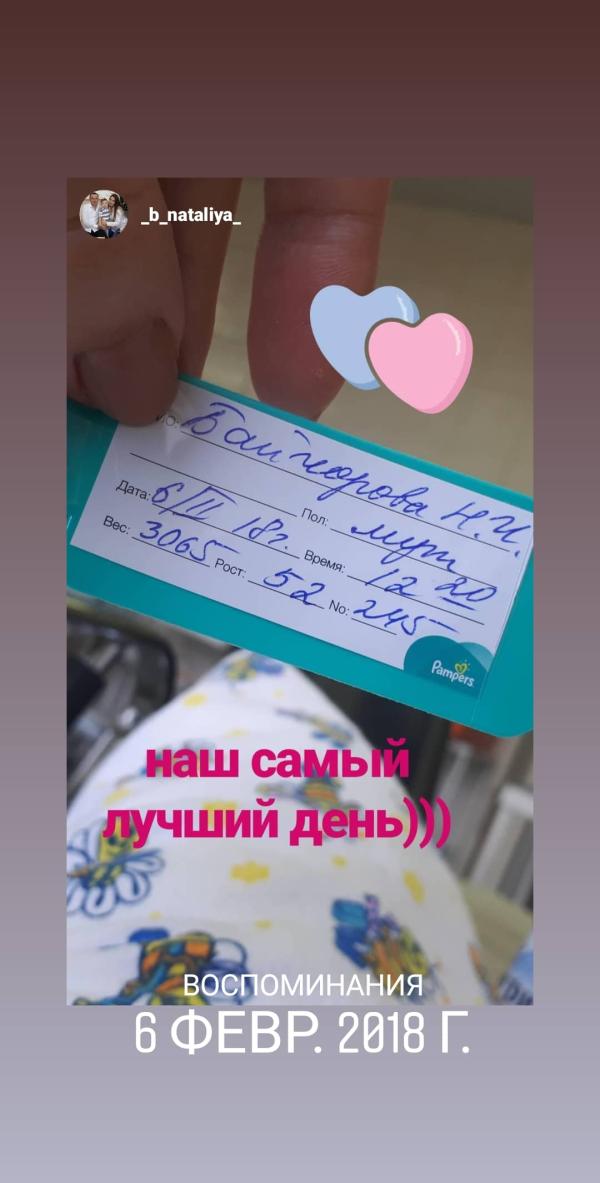 _b_nataliya_
ИО: Байчорова Н.И.
Дата: 6/II 18г. Пол: муж
Вес: 3065 Время: 12 20
Рост: 52 No: 245
Pampers
наш самый
лучший день)))
ВОСПОМИНАНИЯ
6 ФЕВР. 2018 Г.